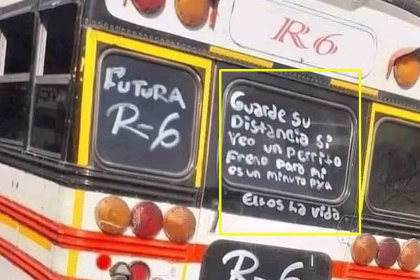 R6
FUTURA
R-6
Guarde su
Distancia si
Veo un perrito
Freno para mi
es un minuto pxa
Ellos La vida
R-6